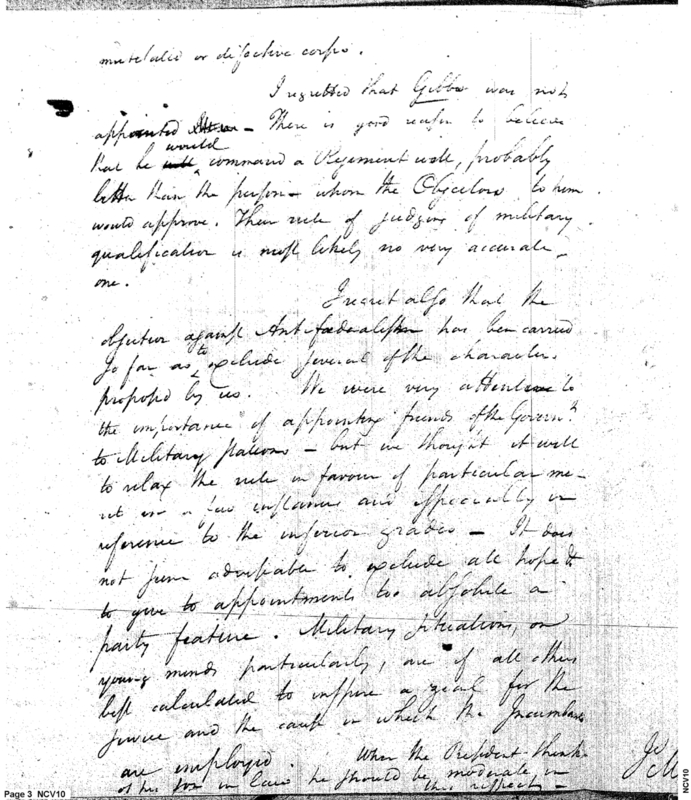 mutilated or defective corps.
I regretted that Gibbes was not
appointed – There is good reason to believe
would
that he will command a Regiment well, probably
better than the person – whom the Objectors to him
would approve. Their rule of judging of military
qualification is most likely no very accurate
one.
I regret also that the
objection against Antifœderalism has been carried
so far as to exclude several of the characters
proposed by us. We were very attentive to
the importance of appointing friends of the Governt.
to Military stations – but we thought it well
to relax the rule in favour of particular me-
rit in a few instances and especially in
reference to the inferior grades – It does
not seem adviseable to exclude all hope &
to give to appointments too absolute a
party feature. Military situations, on
young minds particularly, are of all others
best calculated to inspire a zeal for the
service and the cause in which the Incumbents
are employed. When the President thinks
of his son in law he should be moderate in
this respect –
Page 3 NCV10
NCV10